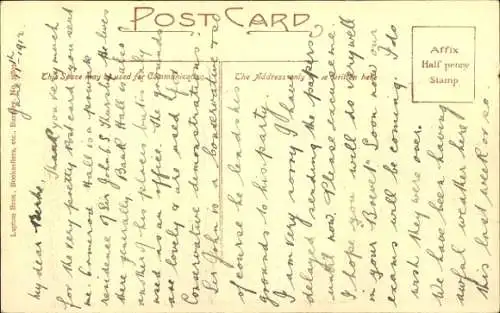 POST CARD
This Space may be used for Communication.
The Address only to be written here.
Affix
Half penny
Stamp
1912
My dear
Thank you very much
for the very pretty Postcard you sent
me. Ormerod Hall is a private
residence of Sir John O. S. Thursby. He lives
there generally. Bank Hall is also
another of his places but is only
used as an office. The grounds
are lovely & are used for
Conservative demonstrations.
Sir John is a Conservative and
of course he lends his
grounds to his party.
I am very sorry I have
delayed sending the papers
until now. Please excuse me.
I hope you will do very well
in your "Brevet". Soon now our
exams will be coming. I do
wish they were over.
We have been having
awful weather here
this last week or so.
Lupton Bros., Booksellers, etc., Burnley. No.